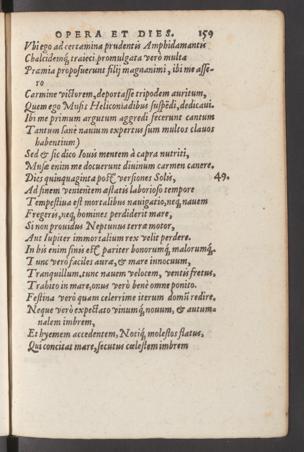 OPERA ET DIES. 159
Vbi ego ad certamina prudentis Amphidamantis
Chalcidemq́; traieci promulgata verò multa
Præmia proposuerunt filij magnanimi, ibi me asse-
ro
Carmine victorem, deportasse tripodem auritum,
Quem ego Musis Heliconiadibus suspẽdi, dedicaui.
Ibi me primum argutum aggredi fecerunt cantum
Tantum sanè nauum expertus sum multos clauos
habentium)
Sed & sic dico Iouis mentem à capra nutriti,
Musæ enim me docuerunt diuinum carmen canere.
Dies quinquaginta post versiones Solis, 49.
Ad finem venientem æstatis laborioso tempore
Tempestiua est mortalibus nauigatio, neq, nauem
Fregeris, neq, homines perdiderit mare,
Si non prouidus Neptunus terræ motor,
Aut Iupiter immortalium rex velit perdere.
In his enim finis est pariter bonorumq́, malorumq́.
Tunc verò faciles auræ, & mare innocuum,
Tranquillum, tunc nauem velocem, ventis fretus,
Trahito in mare, onus verò benè omne ponito.
Festina verò quàm celerrime iterum domũ redire,
Neque verò expectato vinumq́, nouum, & autum-
nalem imbrem,
Et hyemem accedentem, Notiq́, molestos flatus,
Qui concitat mare, secutus cœlestem imbrem